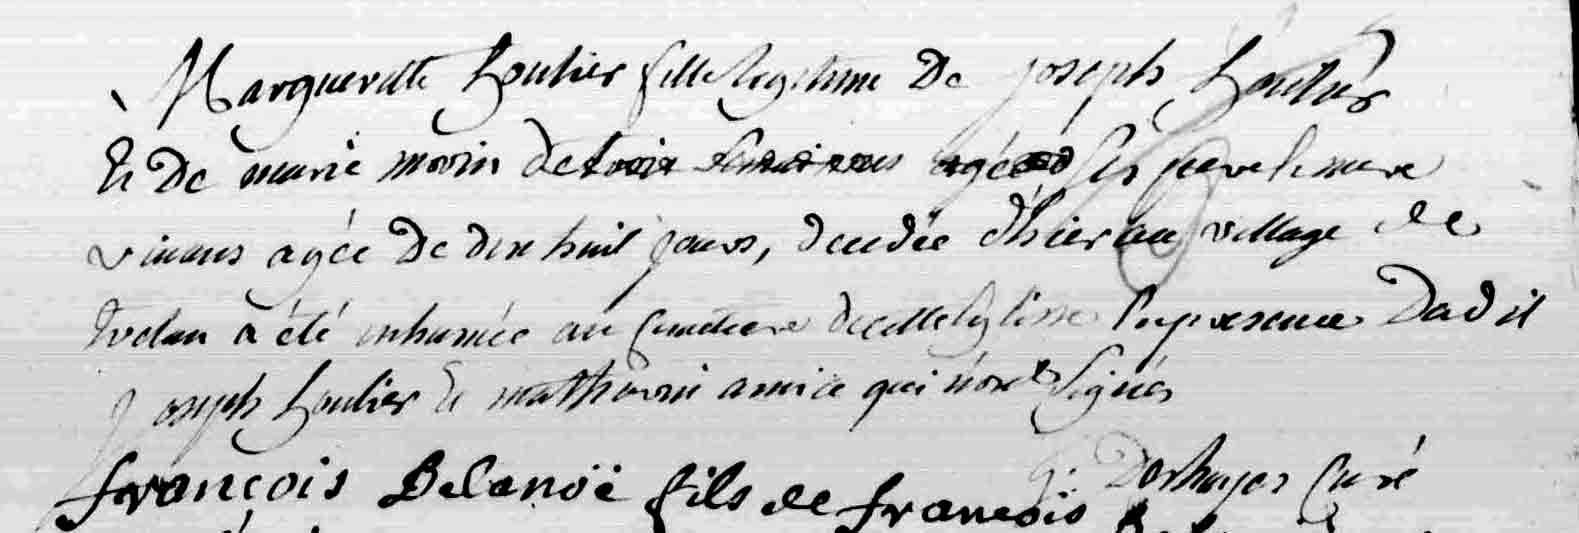 Margueritte houlier fille legitime De joseph houlier
Et De marie morin de trois semaines agée ses pere et mere
vivans agée De dix huit jours, decedée d'hier au village de
a été inhumée au cimetiere de cette Eglise En presence Dudit
joseph houlier Et mathurin amice qui n'ont Signés
Deshayes Curé
françois Belanoë fils de françois